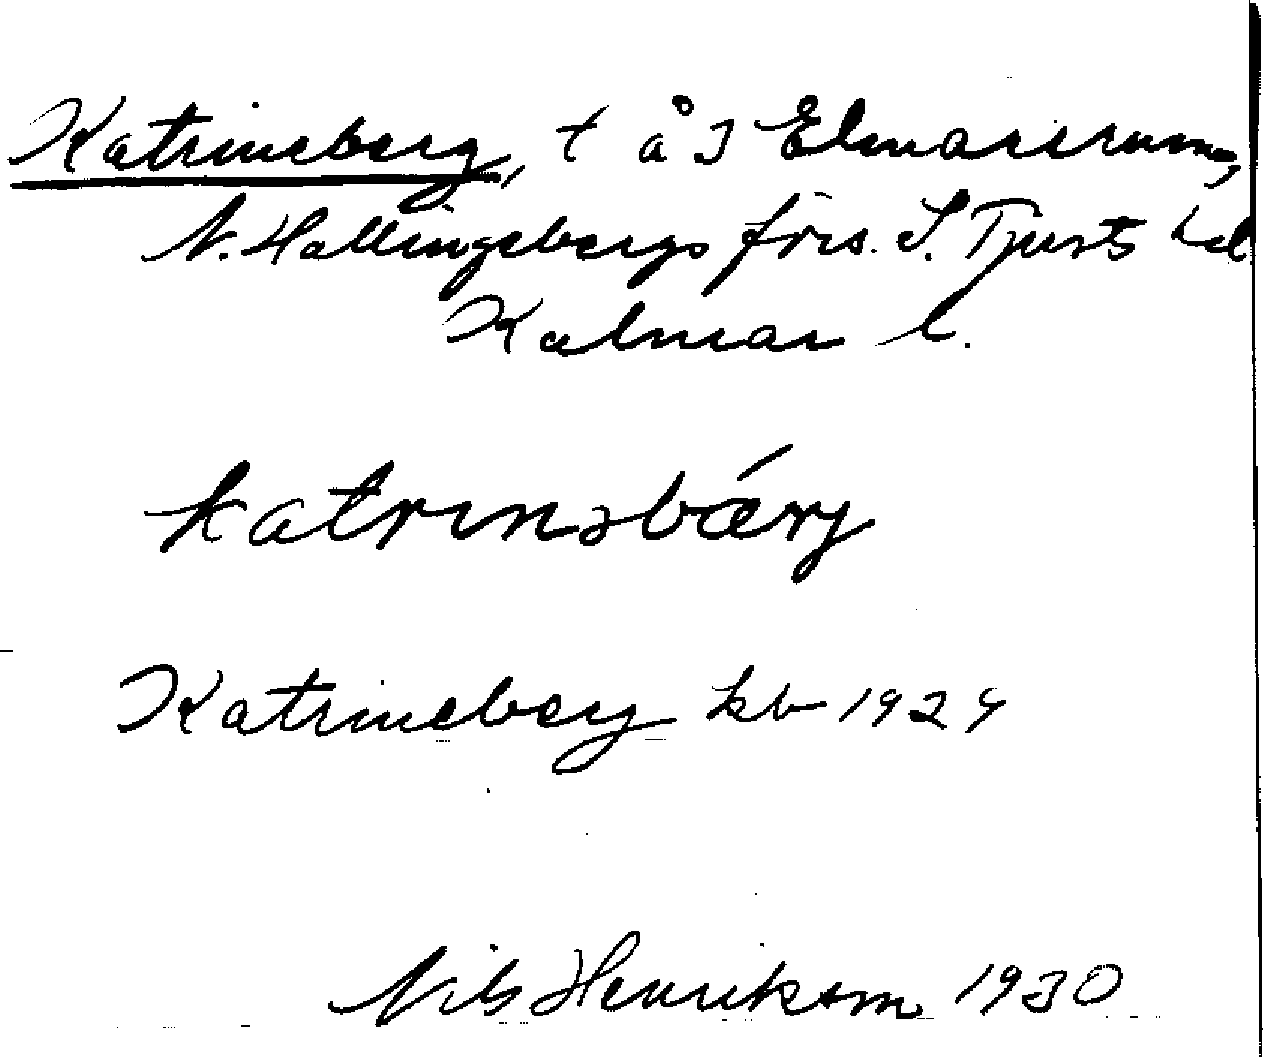 Katrineberg, t å 3 Elmarsrum,
N. Hallingebergs förs. S. Tjusts hd
Kalmar l.
katrinəbǽrj
Katrineberg kb 1924
Nils Henrikson 1930